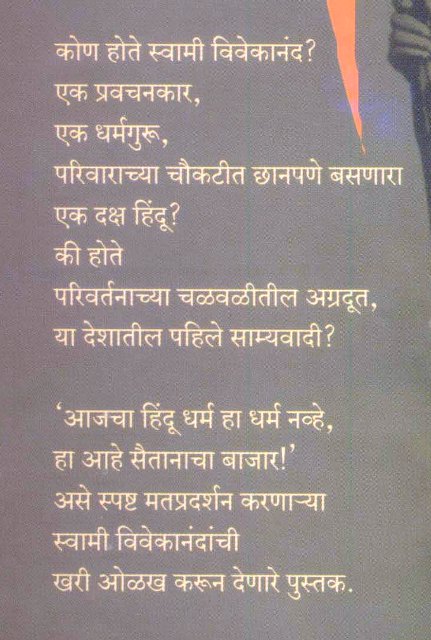 कोण होते स्वामी विवेकानंद?
एक प्रवचनकार,
एक धर्मगुरू,
परिवाराच्या चौकटीत छानपणे बसणारा
एक दक्ष हिंदू?
की होते
परिवर्तनाच्या चळवळीतील अग्रदूत,
या देशातील पहिले साम्यवादी?
‘आजचा हिंदू धर्म हा धर्म नव्हे,
हा आहे सैतानाचा बाजार!’
असे स्पष्ट मतप्रदर्शन करणाऱ्या
स्वामी विवेकानंदांची
खरी ओळख करून देणारे पुस्तक.